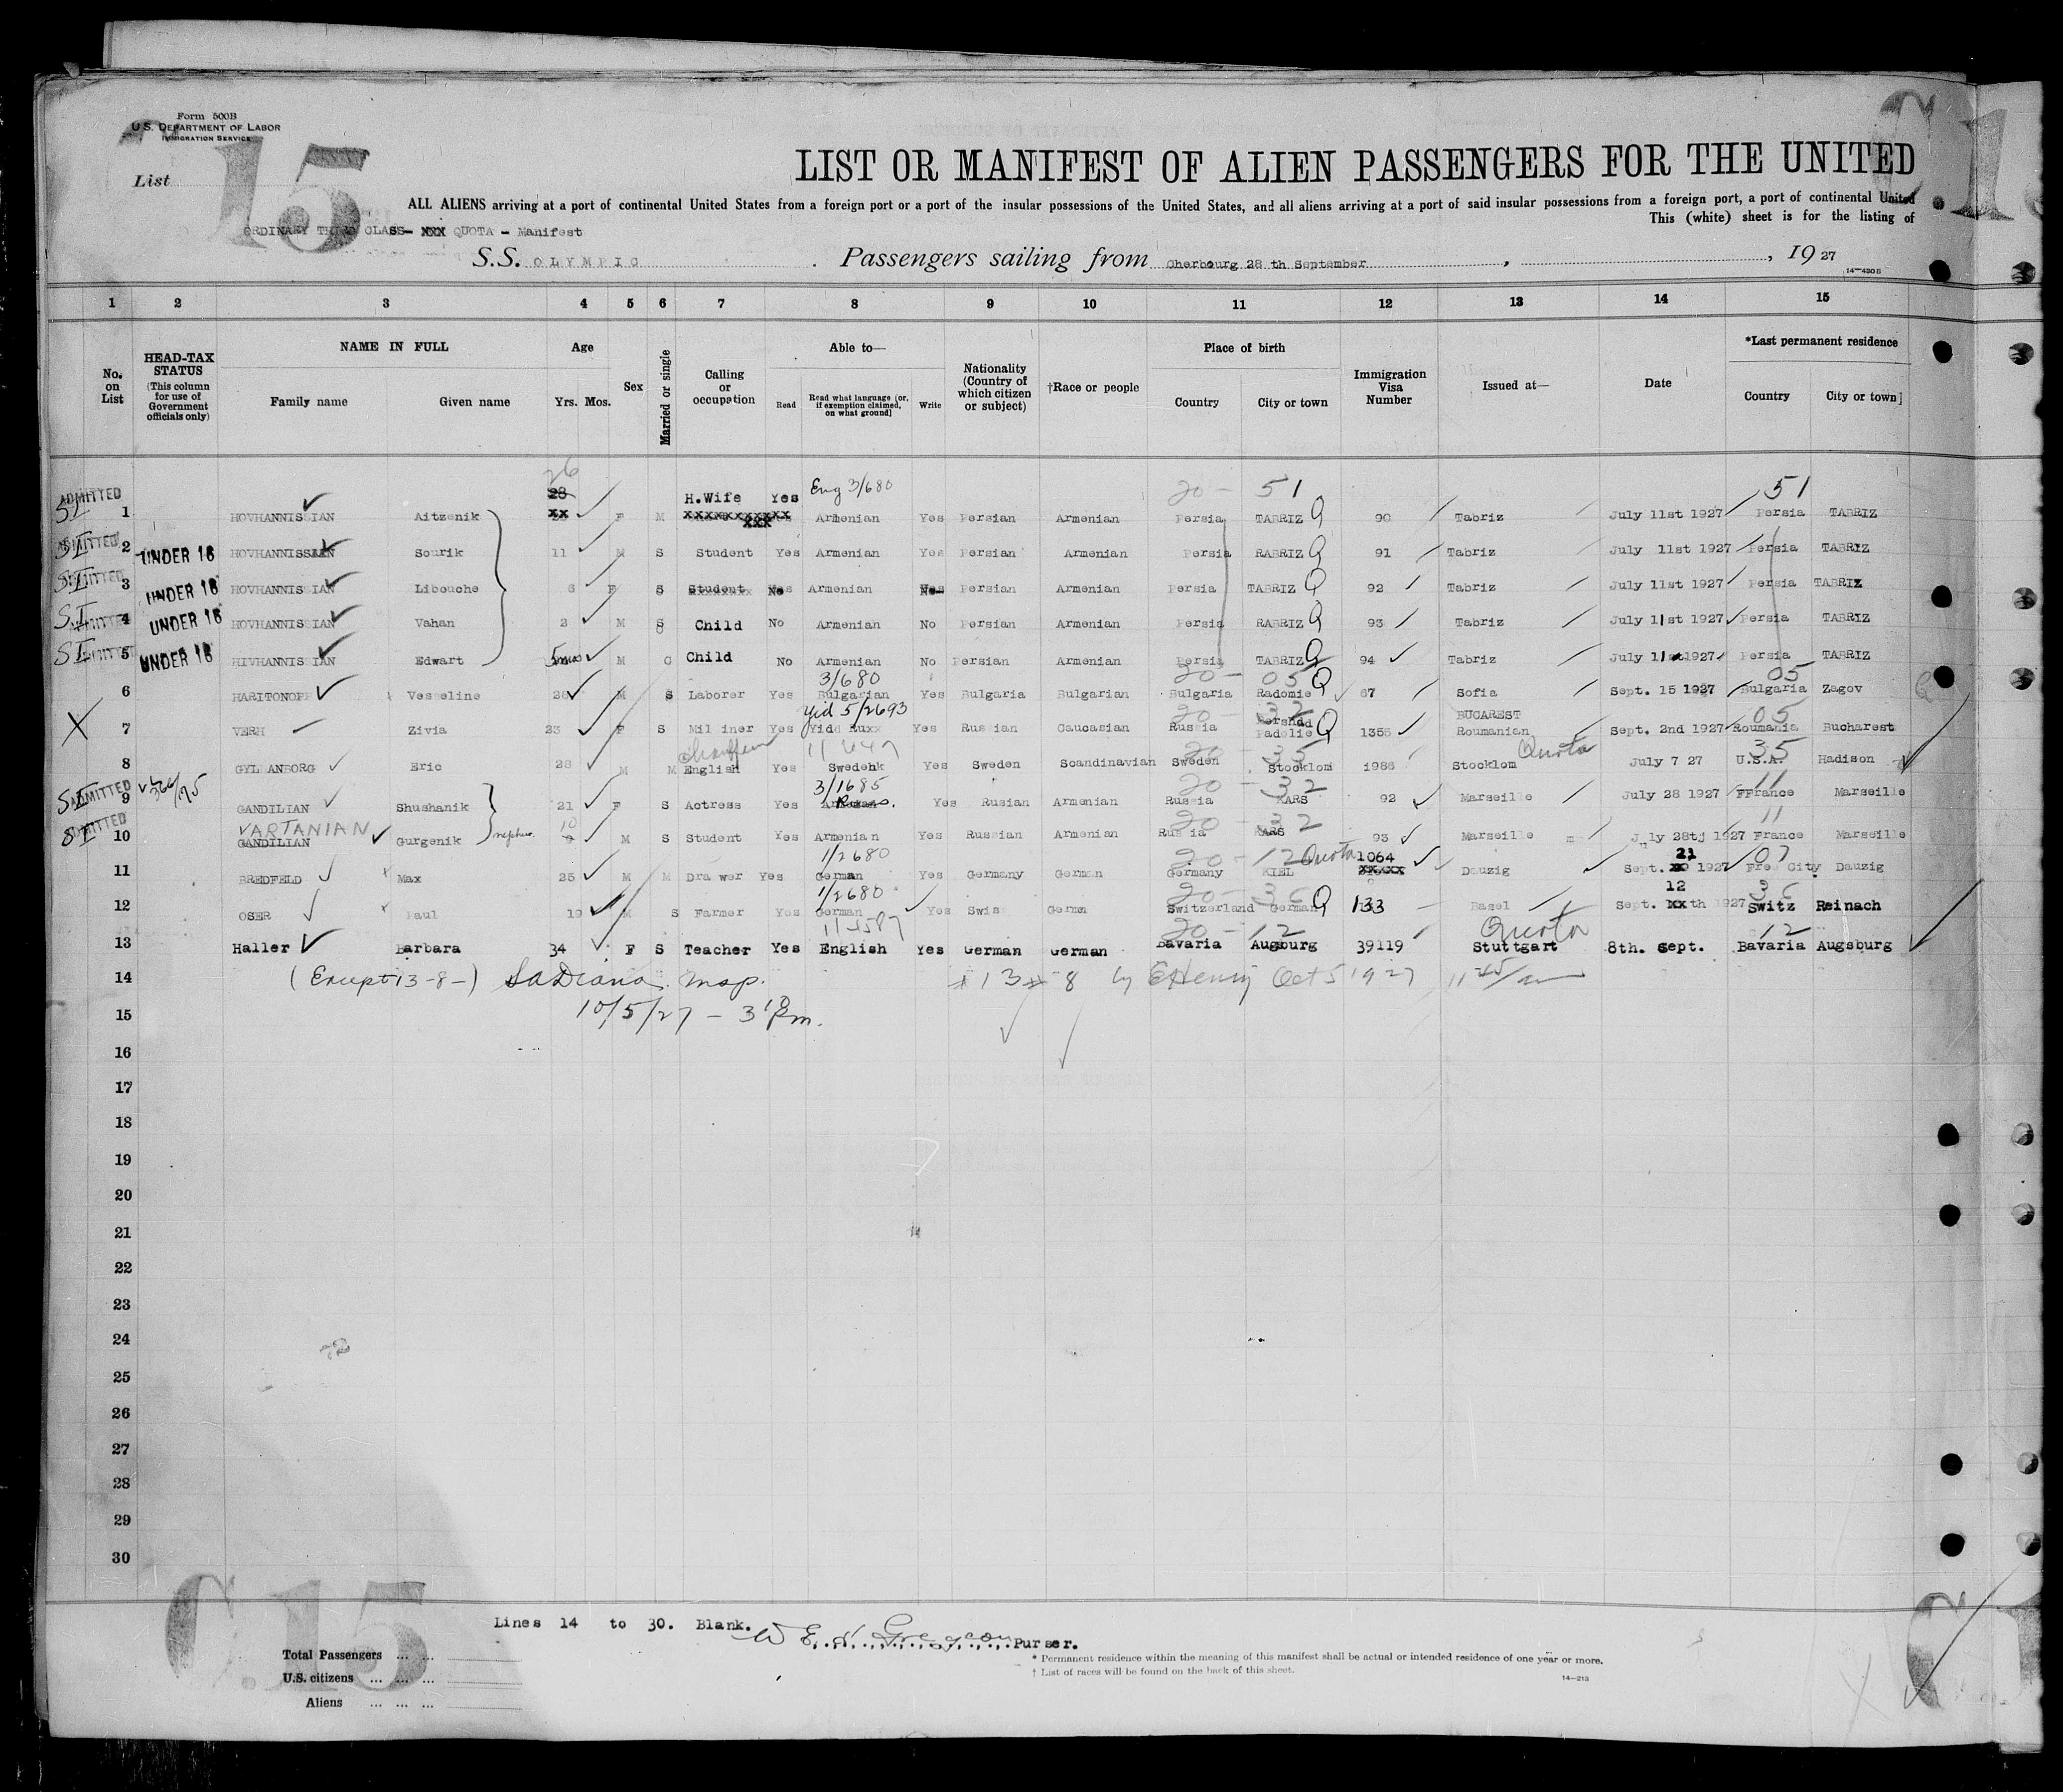 Form 500B
U.S. DEPARTMENT OF LABOR
IMMIGRATION SERVICE
C 15
List
LIST OR MANIFEST OF ALIEN PASSENGERS FOR THE UNITED
ALL ALIENS arriving at a port of continental United States from a foreign port or a port of the insular possessions of the United States, and all aliens arriving at a port of said insular possessions from a foreign port, a port of continental United
This (white) sheet is for the listing of
ORDINARY THIRD CLASS- XXX QUOTA - Manifest
S.S. OLYMPIC Passengers sailing from Cherbourg 28 th September, , 19 27
14-430B
1 2 3 4 5 6 7 8 9 10 11 12 13 14 15
No. on List
HEAD-TAX STATUS (This column for use of Government officials only)
NAME IN FULL Family name Given name
Age Yrs. Mos.
Sex
Married or single
Calling or occupation
Able to— Read Read what language [or, if exemption claimed, on what ground] Write
Nationality (Country of which citizen or subject)
†Race or people
Place of birth Country City or town
Immigration Visa Number
Issued at—
Date
*Last permanent residence Country City or town]
26 Eng 3/680 20- 51 51
ADMITTED SI 1 HOVHANNISSIAN Aitzenik 28 xx F M H.Wife xxxxxxxxxxx Yes Armenian Yes Persian Armenian Persia TABRIZ Q 90 Tabriz July 11st 1927 Persia TABRIZ
ADMITTED SI 2 UNDER 16 HOVHANNISSIAN Sourik 11 M S Student Yes Armenian Yes Persian Armenian Persia RABRIZ Q 91 Tabriz July 11st 1927 Persia TABRIZ
ADMITTED SI 3 UNDER 16 HOVHANNISSIAN Libouche 6 F S Student No Armenian No Persian Armenian Persia TABRIZ Q 92 Tabriz July 11st 1927 Persia TABRIZ
ADMITTED SI 4 UNDER 16 HOVHANNISSIAN Vahan 2 M S Child No Armenian No Persian Armenian Persia RABRIZ Q 93 Tabriz July 11st 1927 Persia TABRIZ
ADMITTED SI 5 UNDER 16 HIVHANNISSIAN Edwart 5 mos M Child No Armenian No Persian Armenian Persia TABRIZ Q 94 Tabriz July 11st 1927 Persia TABRIZ
3/680 20- 05 05
6 HARITONOFF Vesseline 28 M S Laborer Yes Bulgarian Yes Bulgaria Bulgarian Bulgaria Radomie Q 67 Sofia Sept. 15 1927 Bulgaria Zagov
Yid 5/2693 20- 32 BUCAREST 05
X 7 VERH Zivia 23 F S Mil iner Yes Yidd Ruxx Yes Russian Caucasian Russia Padolie Q 1355 Roumanian Sept. 2nd 1927 Roumania Bucharest
Chauffeur 20- 35 Quota 35
8 GYLLANBORG Eric 28 M M English Yes Swedehk Yes Sweden Scandinavian Sweden Stocklom 1986 Stocklom July 7 27 U.S.A. Hadison
3/1685 20- 32 11
ADMITTED SI 9 GANDILIAN Shushanik 21 F S Actress Yes Yes Rusian Armenian Russia KARS 92 Marseille July 28 1927 FFrance Marseille
VARTANIAN 10 20- 32 11
ADMITTED SI 10 GANDILIAN Gurgenik nephew 9 M S Student Yes Armenian Yes Russian Armenian Russia KARS 93 Marseille July 28tj 1927 France Marseille
1/2680 20- 12 Quota 1064 21 07
11 BREDFELD Max 25 M M Drawer Yes German Yes Germany German Germany KIEL xxxxx Dauzig Sept. 1927 Free City Dauzig
1/2680 20- 36 12 36
12 OSER Paul 19 M S Farmer Yes German Yes Swis Germa Switzerland German Q 133 Basel Sept. xxth 1927 Switz Reinach
20- 12 Quota 12
13 Haller Barbara 34 F S Teacher Yes English Yes German German Bavaria Augburg 39119 Stuttgart 8th. Sept. Bavaria Augsburg
14 (Except 13-8-) Insp. #13 # 8 by EHenry Oct 5 1927 11 45/am
15 10/5/27 - 3 Pm.
16
17
18
19
20
21
22
23
24
25
26
27
28
29
30
C. 15
Lines 14 to 30. Blank.
Purser.
Total Passengers ... ...
U.S. citizens ... ... ...
Aliens ... ... ...
* Permanent residence within the meaning of this manifest shall be actual or intended residence of one year or more.
† List of races will be found on the back of this sheet.
14-213